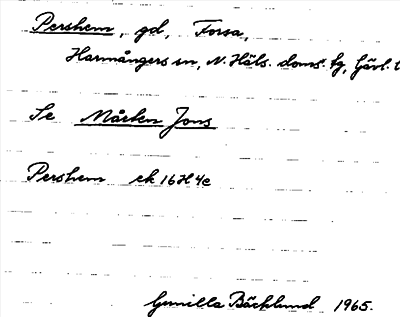 Pershem, gd, Forsa,
Harmångers sn, N. Häls. doms. tg, Gävl. l
Se Mårten Jons
Pershem ek 16H4e
Gunilla Bäcklund 1965.